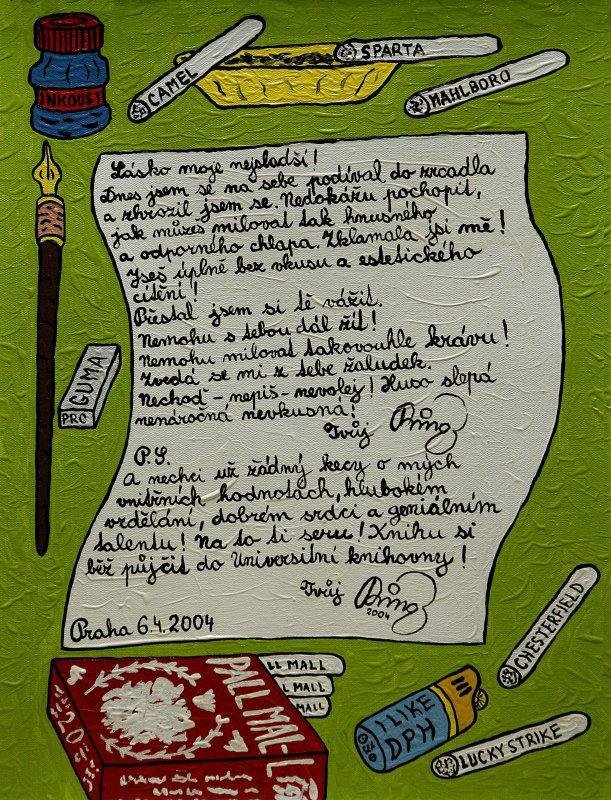 INKOUST
CAMEL
SPARTA
MAHLBORO
Lásko moje nejsladší!
Dnes jsem se na sebe podíval do zrcadla
a zhrozil jsem se. Nedokážu pochopit,
jak můžeš milovat tak hnusného
a odporného chlapa. Zklamala jsi mě!
Jseš úplně bez vkusu a estetického
cítění!
Přestal jsem si tě vážit.
Nemohu s tebou dál žít!
Nemohu milovat takovouhle krávu!
Zvedá se mi z tebe žaludek.
Nechoď - nepiš - nevolej! Huso slepá
nenáročná nevkusná!
Tvůj
P.S.
A nechci už žádný kecy o mých
vnitřních hodnotách, hlubokém
vzdělání, dobrém srdci a geniálním
talentu! Na to ti seru! Knihu si
běž půjčit do Universitní knihovny!
Tvůj
2004
Praha 6.4.2004
GUMA
PRO
CHESTERFIELD
LL MALL
L MALL
MALL
PALL MAL-L
20
I LIKE
DPH
LUCKY STRIKE